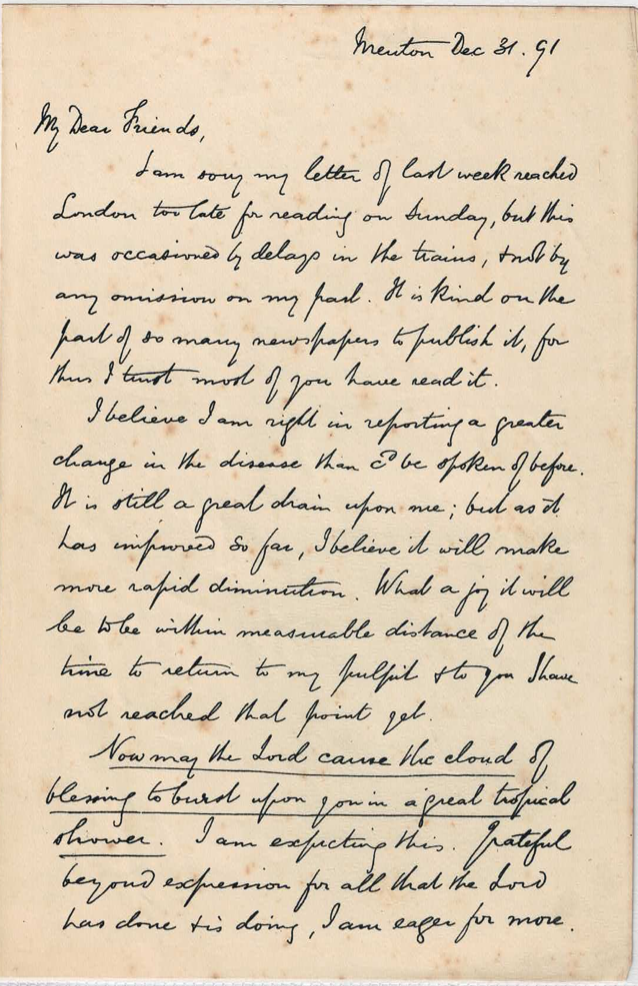 Menton Dec 31. 91
My Dear Friends,
I am sorry my letter of last week reached
London too late for reading on Sunday, but this
was occasioned by delays in the trains, & not by
any omission on my part. It is kind on the
part of so many newspapers to publish it, for
thus I trust most of you have read it.
I believe I am right in reporting a greater
change in the disease than cd be spoken of before.
It is still a great drain upon me; but as it
has improved so far, I believe it will make
more rapid diminution. What a joy it will
be to be within measurable distance of the
time to return to my pulpit & to you I have
not reached that point yet.
Now may the Lord cause the cloud of
blessing to burst upon you in a great tropical
shower. I am expecting this. Grateful
beyond expression for all that the Lord
has done & is doing, I am eager for more.